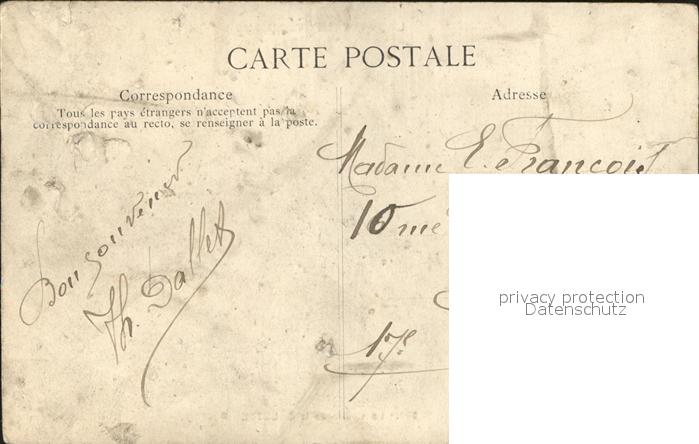 CARTE POSTALE
Correspondance
Tous les pays étrangers n'acceptent pas la
correspondance au recto, se renseigner à la poste.
Bon souvenir
Th. Dallet
Adresse
Madame E. François
10
17e
privacy protection
Datenschutz